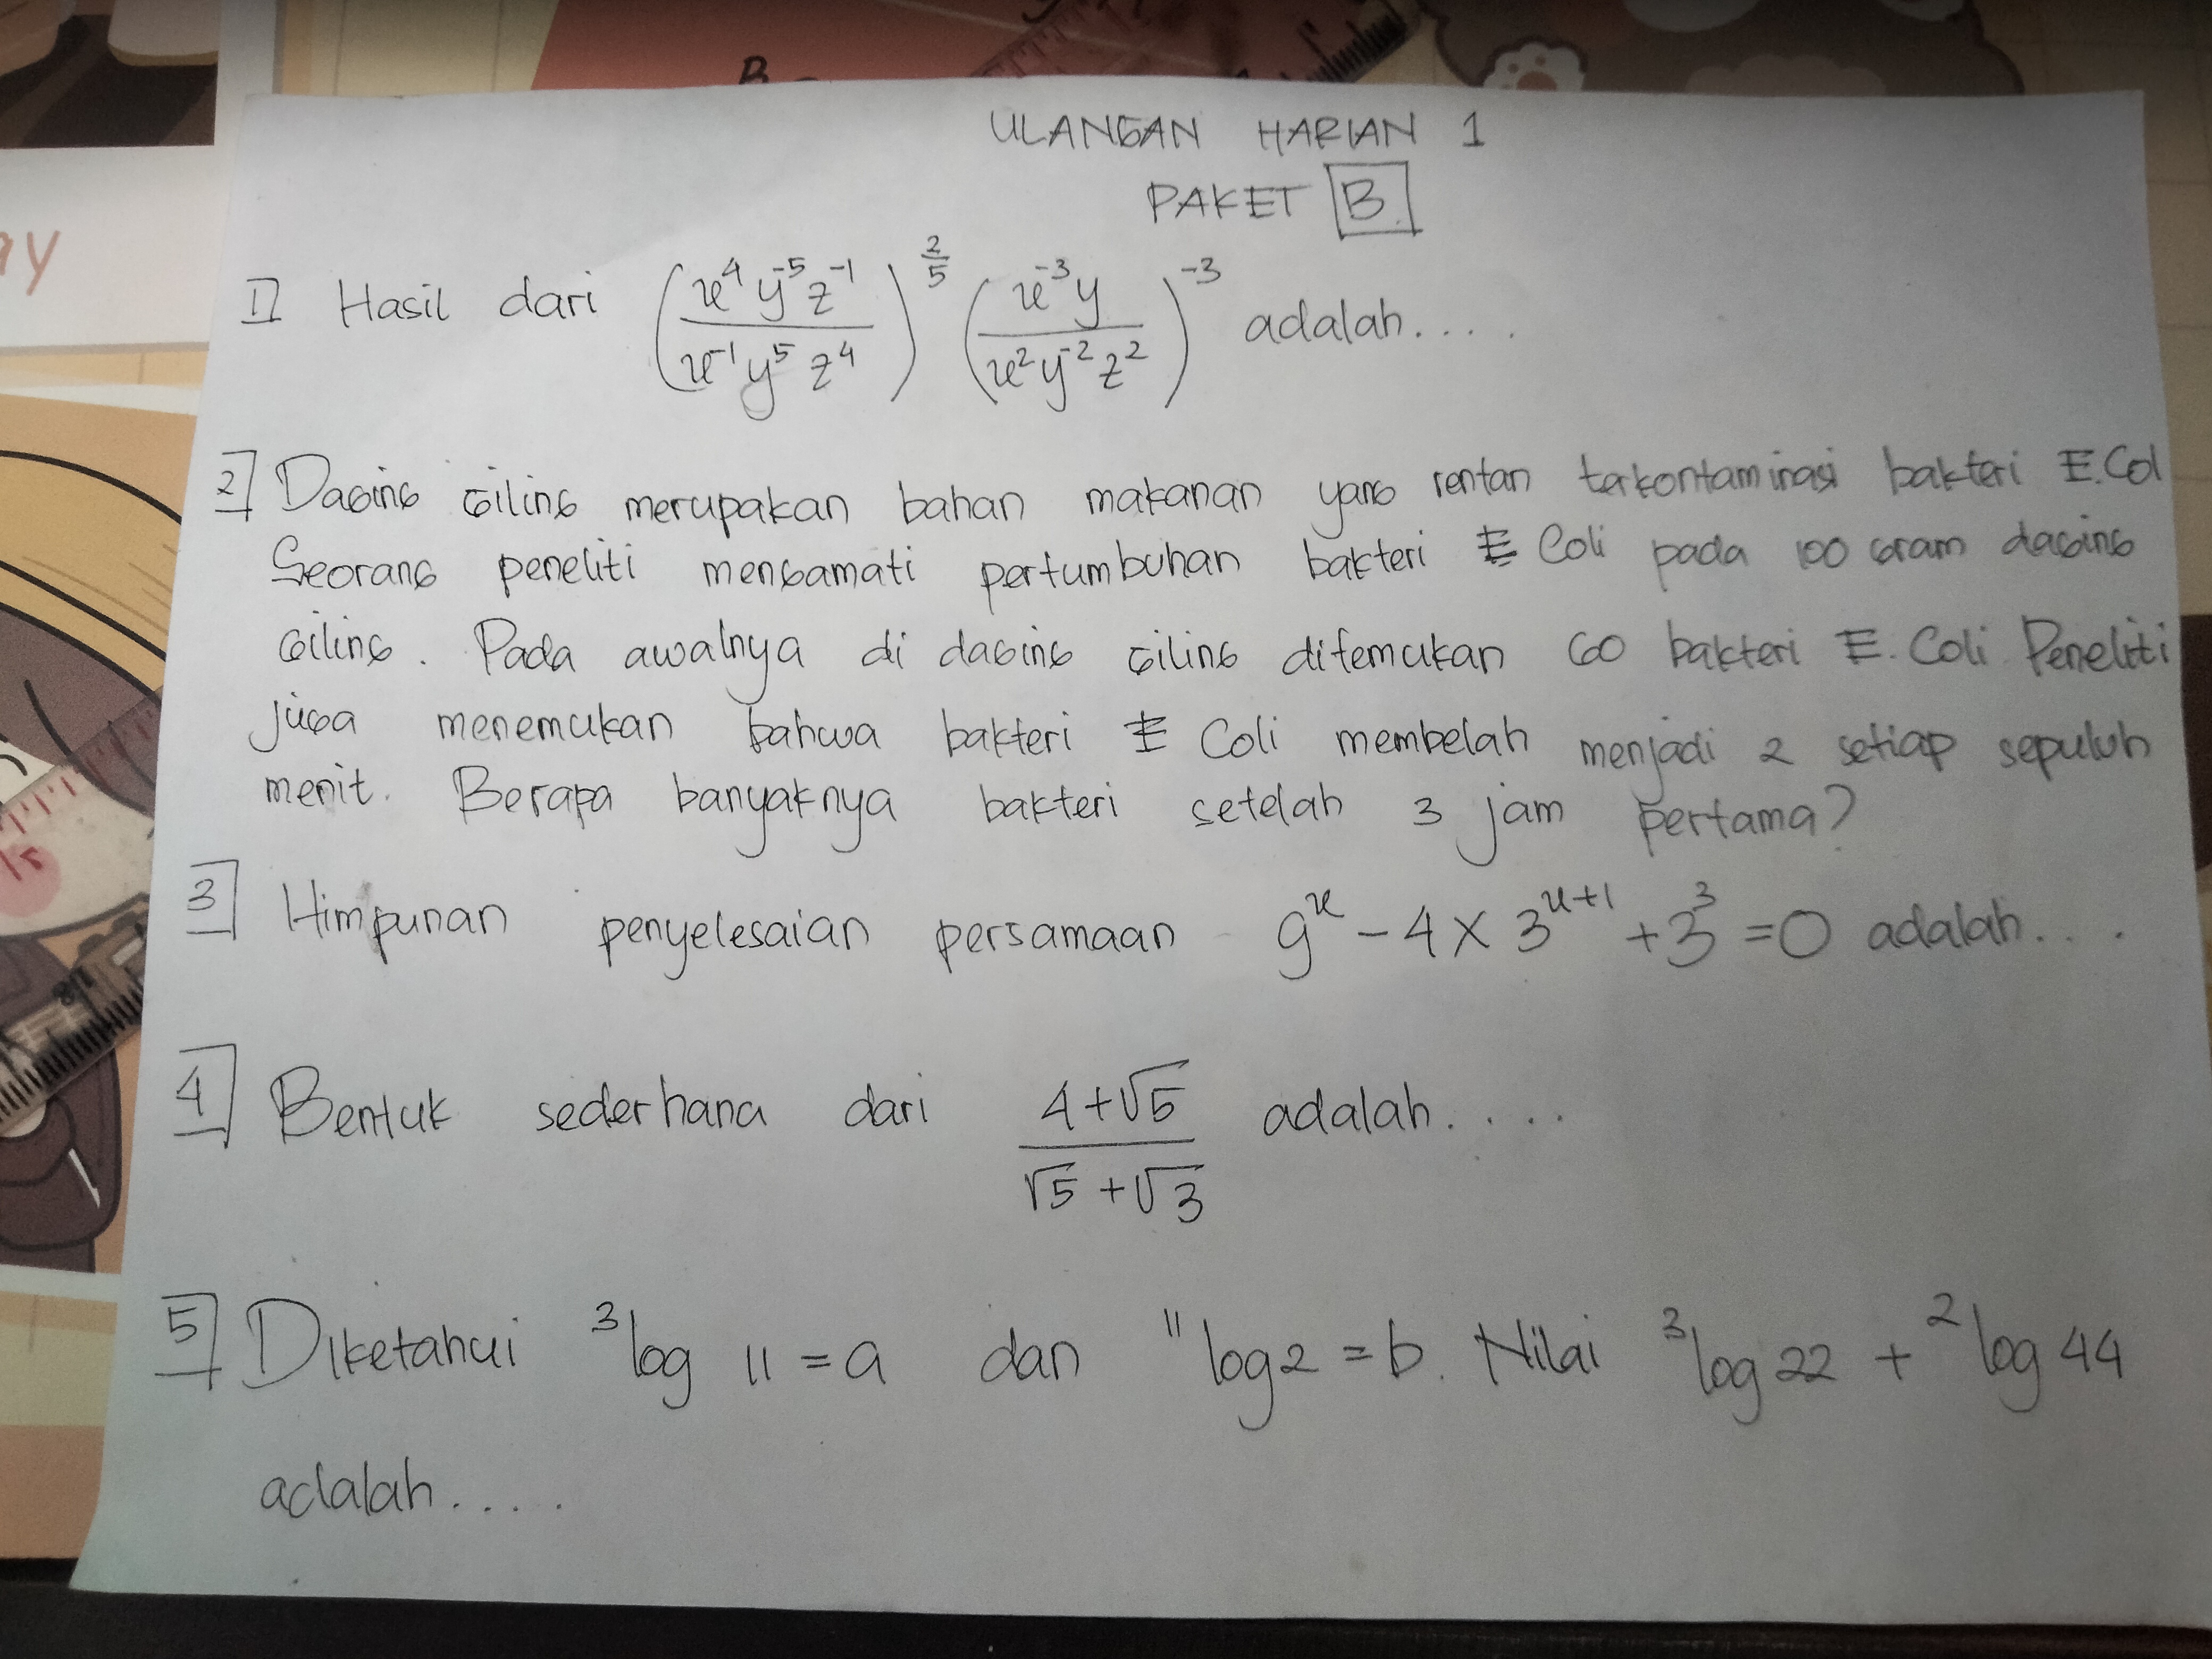 ay
B
ULANGAN HARIAN 1
PAKET B
1 Hasil dari (x⁴ y⁻⁵ z⁻¹ / x⁻¹ y⁵ z⁴)^(2/5) (x⁻³ y / x² y⁻² z²)⁻³ adalah....
2 Daging giling merupakan bahan makanan yang rentan terkontaminasi bakteri E.Col
Seorang peneliti mengamati pertumbuhan bakteri E Coli pada 100 gram daging
giling. Pada awalnya di daging giling ditemukan 60 bakteri E. Coli Peneliti
juga menemukan bahwa bakteri E Coli membelah menjadi 2 setiap sepuluh
menit. Berapa banyaknya bakteri setelah 3 jam pertama?
3 Himpunan penyelesaian persamaan 9ˣ - 4 x 3ˣ⁺¹ + 3³ = 0 adalah....
4 Bentuk sederhana dari (4+√5) / (√5+√3) adalah....
5 Diketahui ³log 11 = a dan ¹¹log 2 = b. Nilai ³log 22 + ²log 44
adalah....